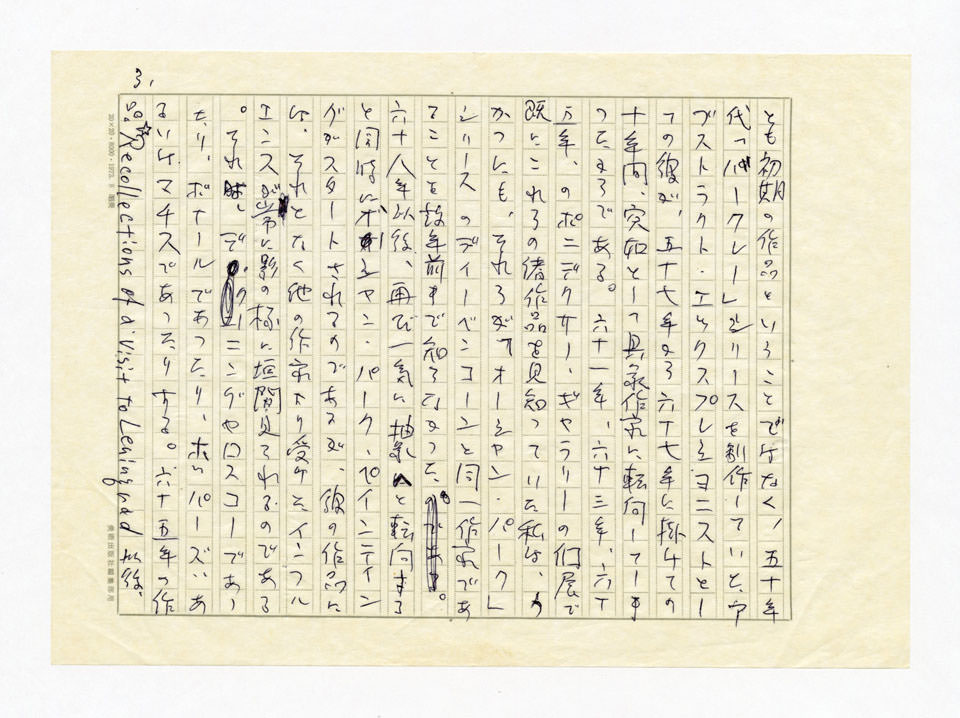 3.
とも初期の作品ということではなく、五十年
代の"バークレー"シリーズを制作していた、ア
ブストラクト・エックスプレショニストとし
ての彼が、五十七年から六十七年に掛けての
十年間、突如として具象作家に転向してしま
ったからである。六十一年、六十三年、六十
五年、のポインデクサー・ギャラリーの個展で
既にこれらの諸作品を見知っていた私は、う
かつにも、それらが"オーシャン・パーク"
シリースのディーベンコーンと同一作家であ
ることを数年前まで知らなかった。
六十八年以後、再び一気に抽象へと転向する
と同時にオーシャン・パーク・ペインティン
グがスタートされるのであるが、彼の作品に
は、それとなく他の作家より受けたインフル
エンスが常に影の様に垣間見てれるのである
。それは、デ・クーニングやロスコーであっ
たり、ボナールであったり、あ
るいはマチスであったりする。六十五年の作
品 Recollections of a Visit to Leningrad 以後、
20×20